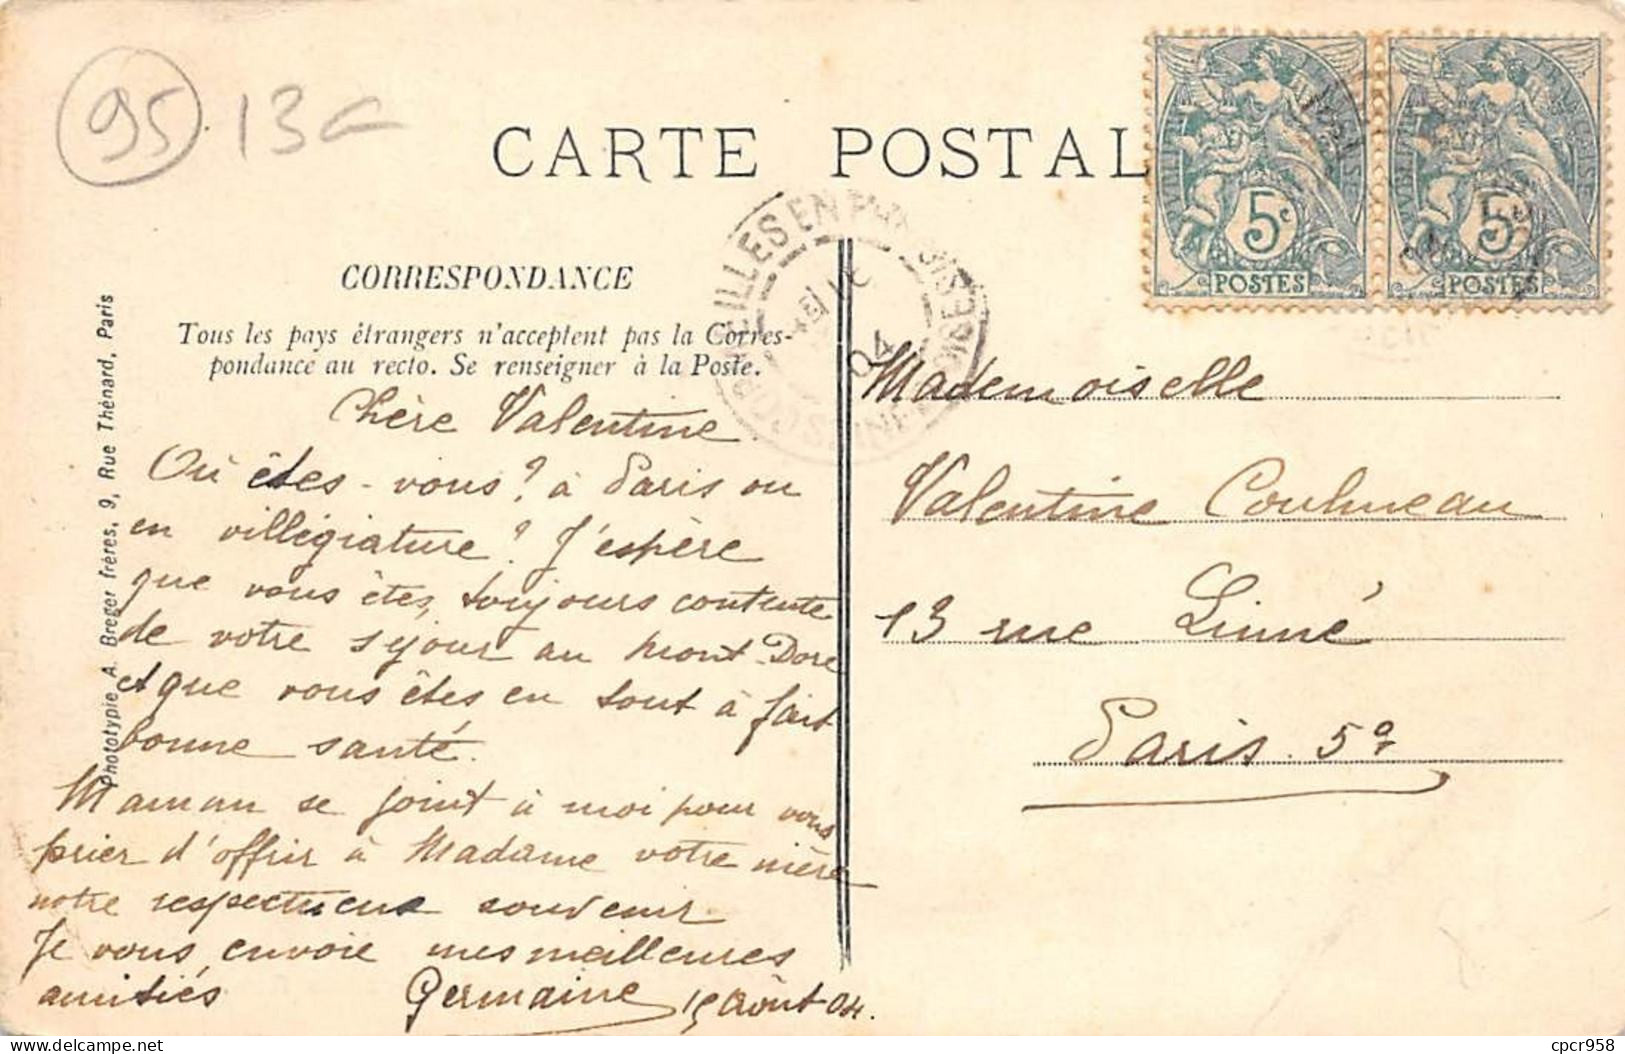 95 13
CARTE POSTAL
CORRESPONDANCE
Tous les pays étrangers n'acceptent pas la Corres-
pondance au recto. Se renseigner à la Poste.
Phototypie A. Breger frères, 9, Rue Thénard, Paris
Chère Valentine
Où êtes-vous ? à Paris ou
en villégiature ? J'espère
que vous êtes, toujours contente
de votre séjour au Mont-Dore
et que vous êtes en tout à fait
bonne santé.
Maman se joint à moi pour vous
prier d'offrir à Madame votre mère
notre respectueux souvenir.
Je vous envoie mes meilleures
amitiés Germaine 15 Août 04.
04
5c
POSTES
5c
POSTES
Mademoiselle
Valentine
13 rue Linné
Paris. 5e
cpcr958